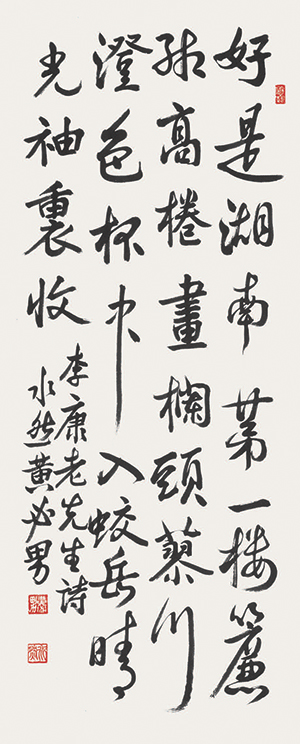 好是湖南苐一楼簾
高捲畫欄頭蓼川
澄色杯中入蛟岳晴
光袖裏收
李康老先生詩
水然黃必男